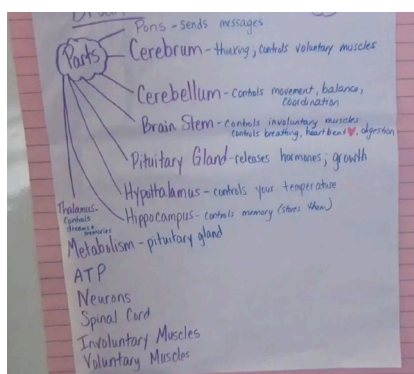 Pons - sends messages
Parts
Cerebrum - thinking, controls voluntary muscles
Cerebellum - controls movement, balance,
coordination
Brain Stem - controls involuntary muscles
controls breathing, heartbeat, digestion
Pituitary Gland - releases hormones; growth
Hypothalamus - controls your temperature
Hippocampus - controls memory (stores them)
Thalamus -
controls
dreams +
memories
Metabolism - pituitary gland
ATP
Neurons
Spinal Cord
Involuntary Muscles
Voluntary Muscles